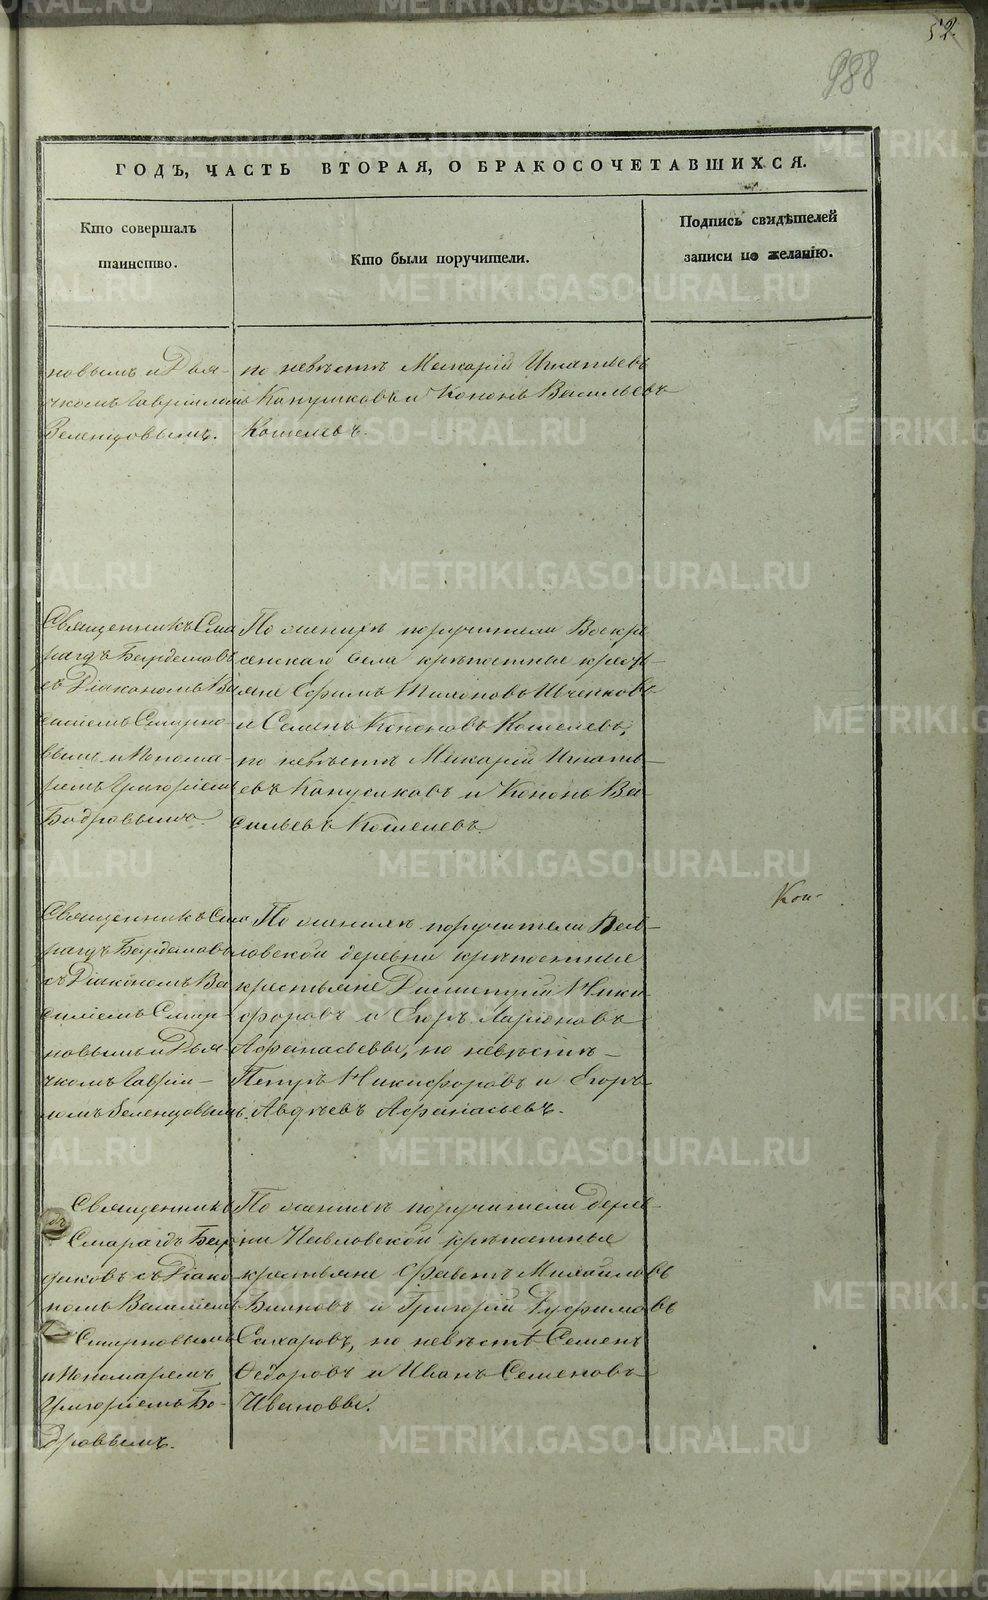 52.
188
ГОДЪ, ЧАСТЬ ВТОРАЯ, О БРАКОСОЧЕТАВШИХСЯ.
Кто совершалъ
таинство.
Кто были поручители.
Подпись свидѣтелей
записи по желанію.
новымъ и Дья-
чкомъ Гавріиломъ
Зеленцовымъ.
по невѣстѣ Макарій Игнатьевъ
Капустковъ и Кононъ Васильевъ
Кошелевъ.
Священникъ Сма
рагдъ Бердяковъ
съ Діакономъ Ва
силіемъ Смирно-
вымъ и Понома-
ремъ Григоріемъ
Бодровымъ.
По женихѣ поручители Воскре
сенскаго села крѣпостные кресть-
яне Ефимъ Тихоновъ
и Семенъ Кононовъ Кошелевъ,
по невѣстѣ Макарій Игнать-
евъ и Кононъ Ва
сильевъ Кошелевъ.
Священникъ Сма
рагдъ Бердяковъ
съ Діакономъ Ва
силіемъ Смир-
новымъ и Дья-
чкомъ Гавріи-
ломъ Зеленцовымъ.
По женихѣ поручители Пав-
ловской деревни крѣпостные
крестьяне Димитрій Ники-
форовъ и Егоръ Ларіоновъ
Афанасьевы, по невѣстѣ-
Петръ Никифоровъ и Егоръ
Авдѣевъ Афанасьевъ.
Кон-
Священникъ
Смарагдъ Бер
дяковъ съ Діако
номъ Василіемъ
Смирновымъ
и Пономаремъ
Григоріемъ Бо-
дровымъ.
По женихѣ поручители дерев-
ни Павловской крѣпостные
крестьяне Михайловъ
и Григорій
Сахаровъ, по невѣстѣ Семенъ
Ѳедоровъ и Иванъ Семеновъ
Ивановы.
METRIKI.GASO-URAL.RU